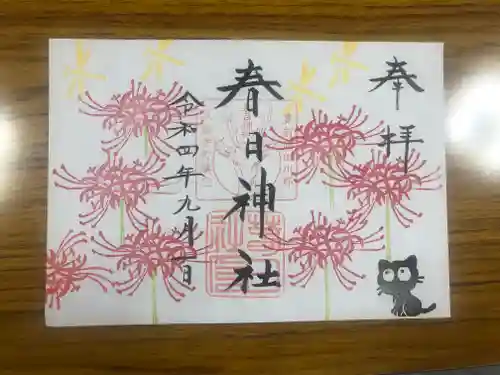 奉拝
春日神社
令和四年九月一日